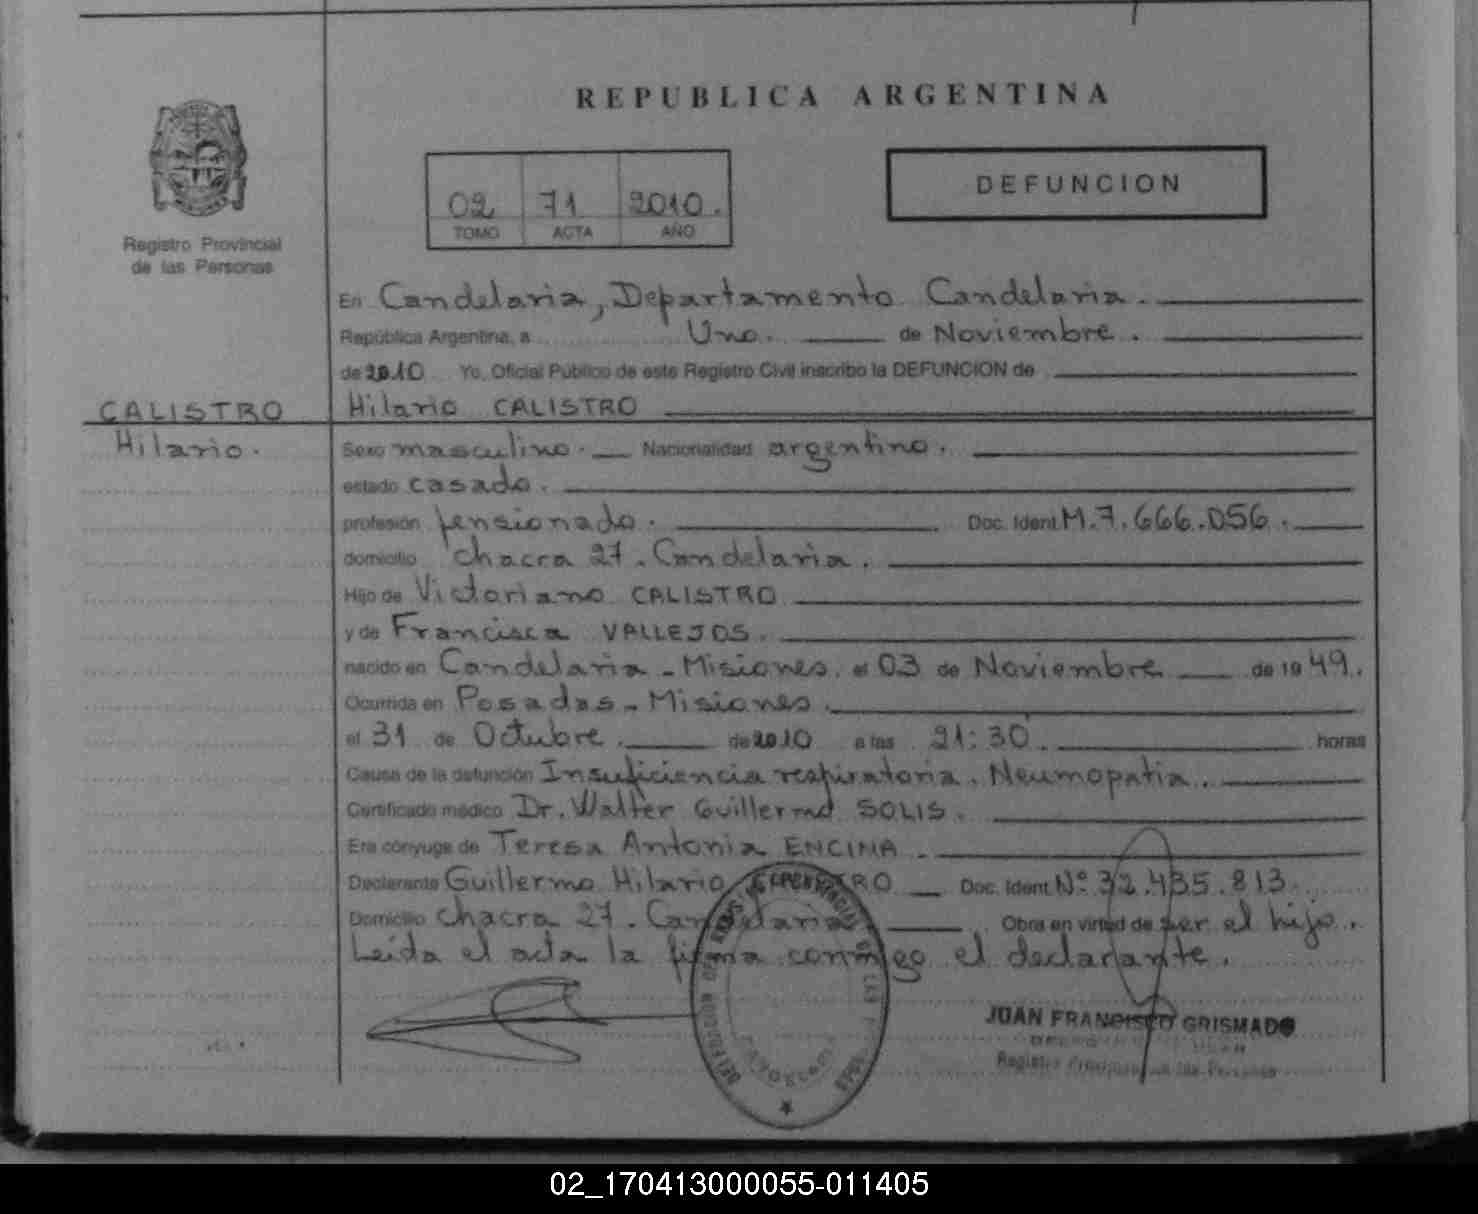 REPUBLICA ARGENTINA
02 71 2010.
TOMO ACTA AÑO
DEFUNCION
Registro Provincial
de las Personas
En Candelaria, Departamento Candelaria.
República Argentina, a Uno. de Noviembre.
de 2010 Yo, Oficial Público de este Registro Civil inscribo la DEFUNCION de
CALISTRO
Hilario.
Hilario CALISTRO
Sexo masculino. Nacionalidad argentino.
estado casado.
profesión pensionado. Doc. Ident. M.7.666.056.
domicilio chacra 27. Candelaria.
Hijo de Victoriano CALISTRO
y de Francisca VALLEJOS.
nacido en Candelaria - Misiones. el 03 de Noviembre de 19 49.
Ocurrida en Posadas - Misiones.
el 31 de Octubre. de 2010 a las 21:30 horas
Causa de la defunción Insuficiencia respiratoria. Neumopatia.
Certificado médico Dr. Walter Guillermo SOLIS.
Era cónyuge de Teresa Antonia ENCINA.
Declarante Guillermo Hilario CALISTRO Doc. Ident. Nº 32.435.813.
Domicilio chacra 27. Candelaria. Obra en virtud de ser el hijo.
Leída el acta la firma conmigo el declarante.
JUAN FRANCISCO GRISMADO
Registro Provincial de las Personas
02_170413000055-011405